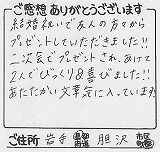 ご感想 ありがとうございます
結婚祝いで友人の方々から
プレゼントしていただきました!!
二次会でプレゼントされ、あけて
2人でびっくり&喜びました!!
あたたかい文章気に入っています
ご住所 岩手 都道府県 胆沢 市区町村